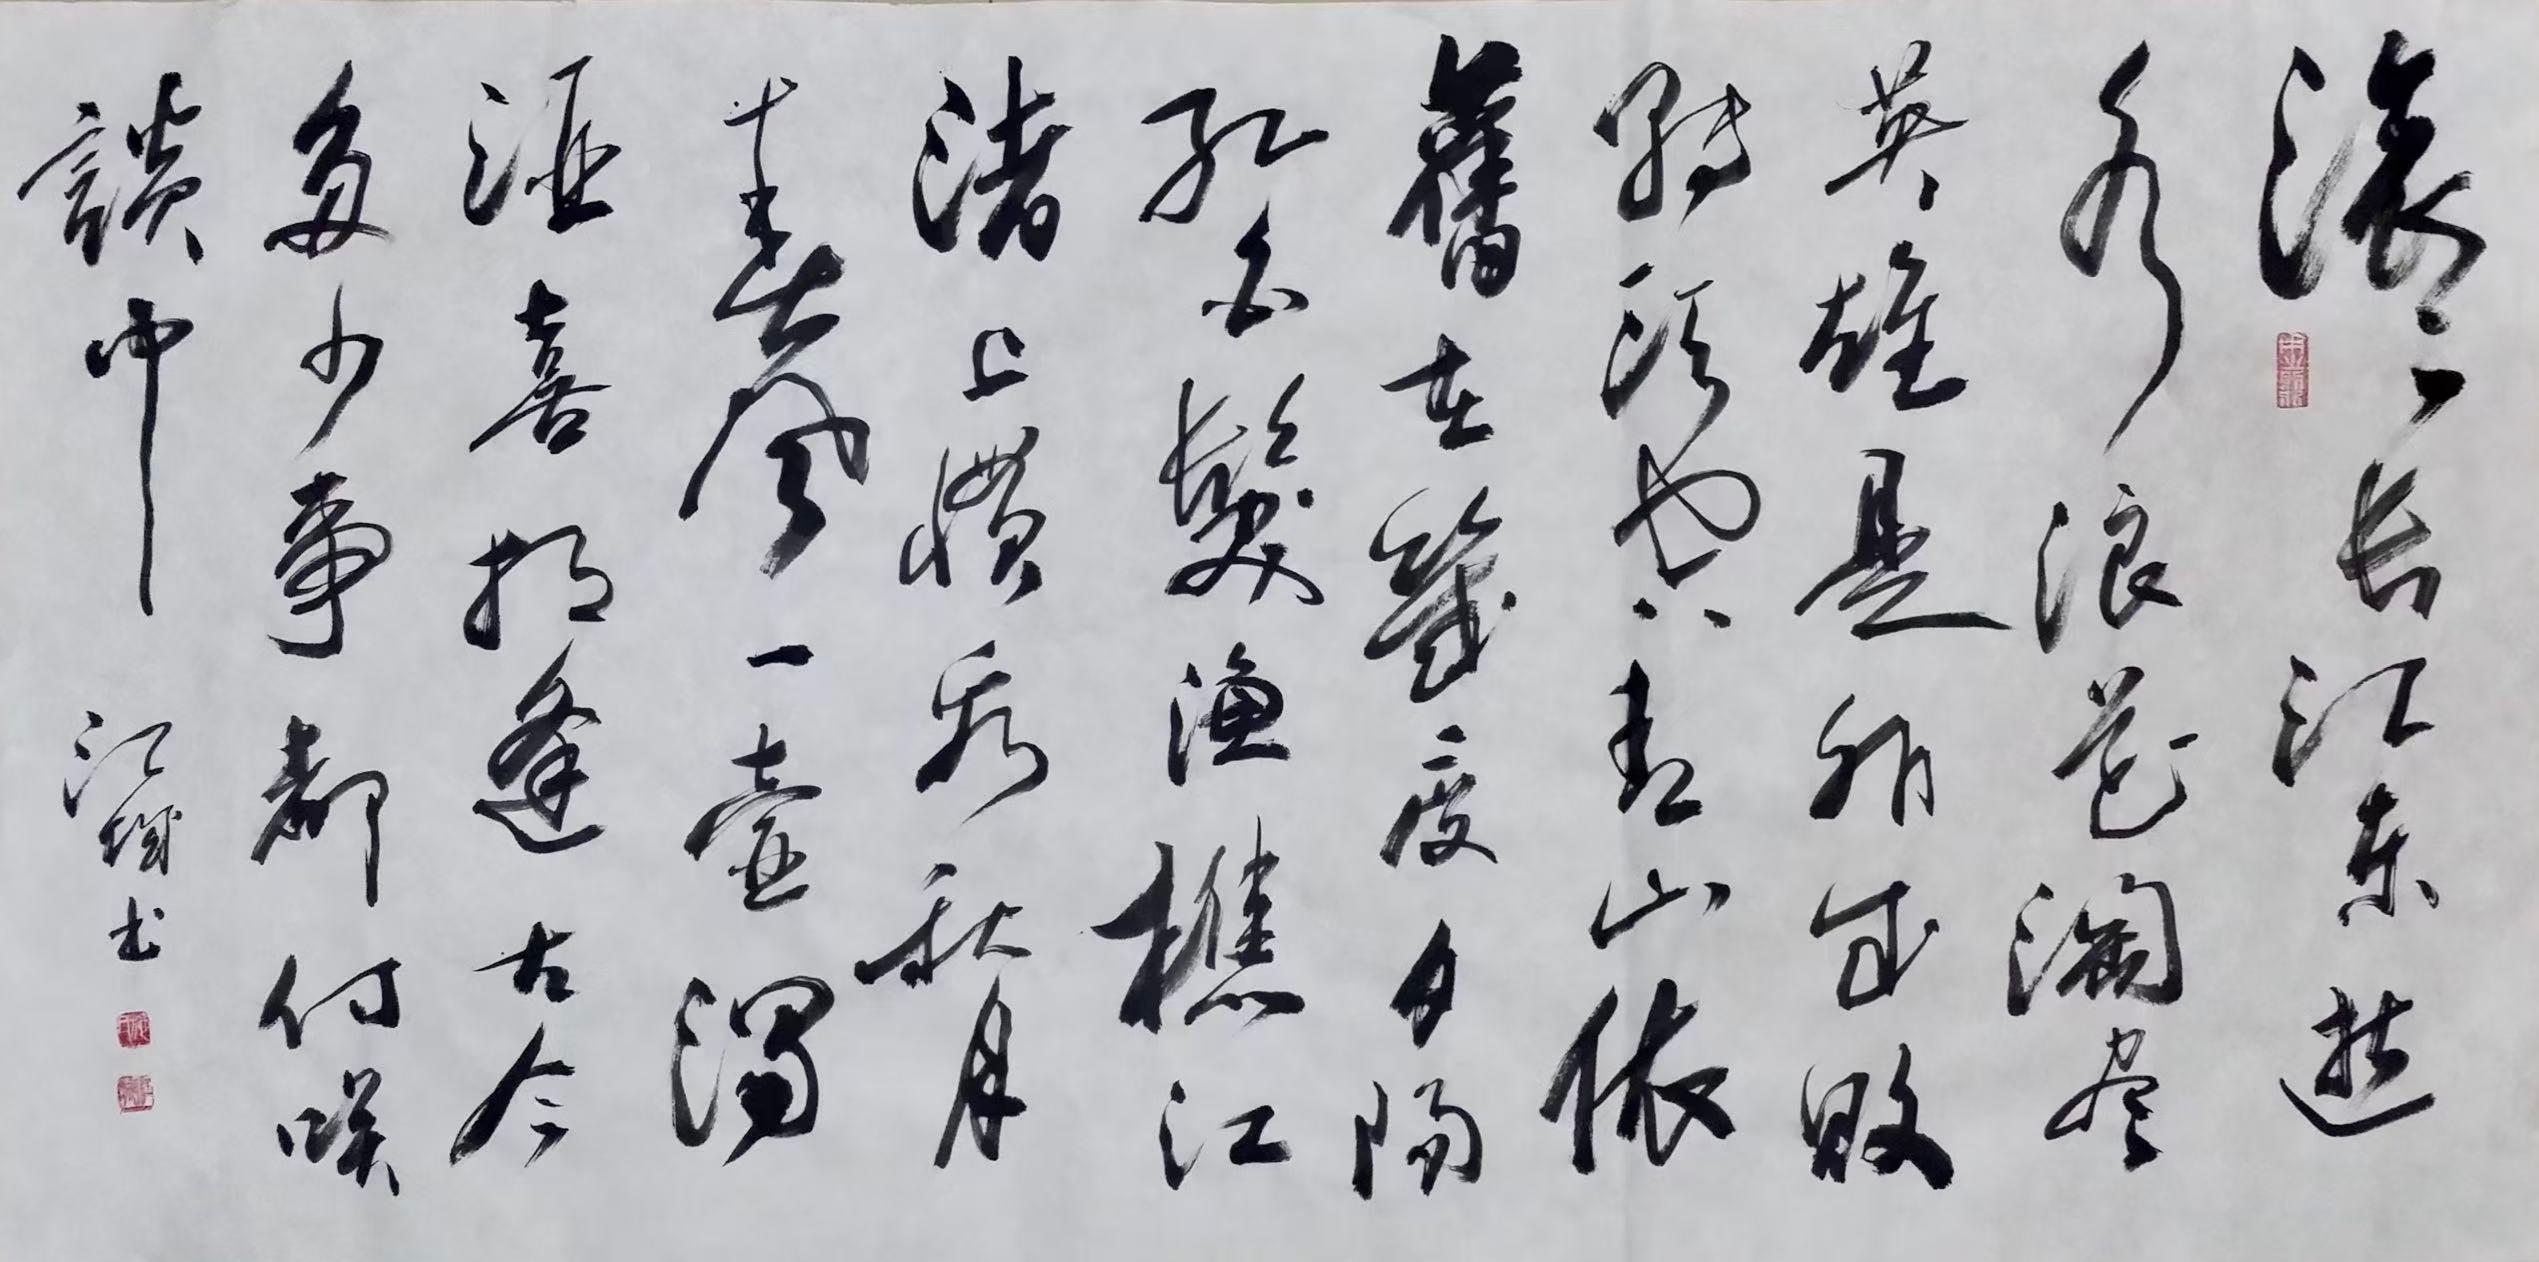 滚〻长江东逝
水浪花淘尽
英雄是非成败
转头空青山依
舊在幾度夕陽
红白髮渔樵江
渚上惯看秋月
春風一壶濁
酒喜相逢古今
多少事都付咲
談中
江城书